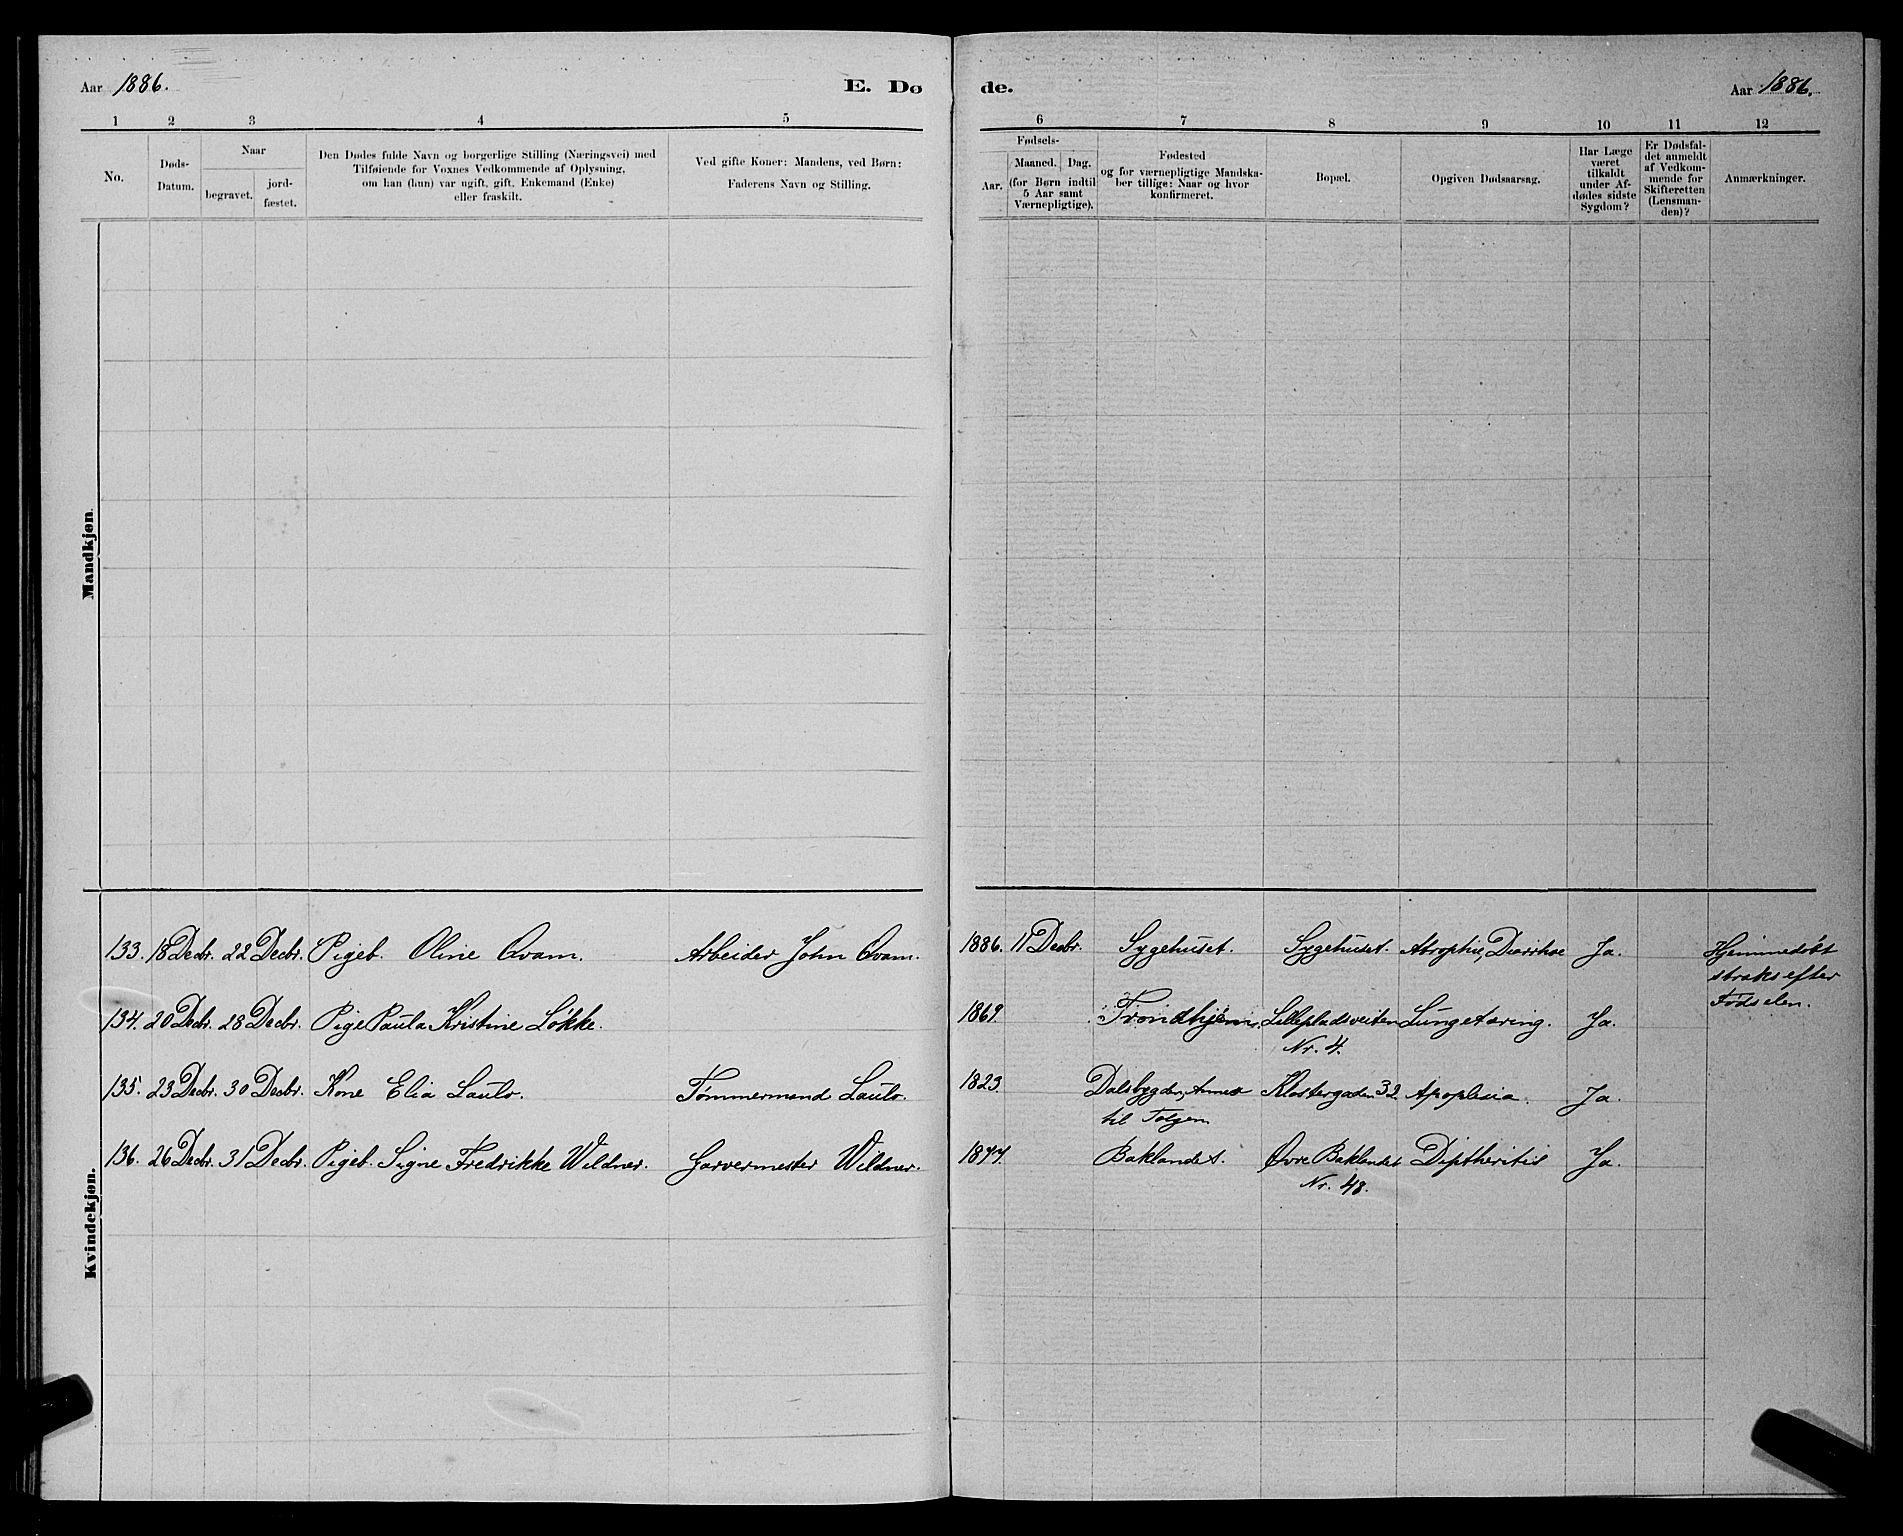 Aar 1886.
E. Dø
1 2 3 4 5
No.
Døds-
Datum.
Naar
begravet.
jord-
fæstet.
Den Dødes fulde Navn og borgerlige Stilling (Næringsvei) med
Tilføiende for Voxnes Vedkommende af Oplysning,
om han (hun) var ugift, gift, Enkemand (Enke)
eller fraskilt.
Ved gifte Koner: Mandens, ved Børn:
Faderens Navn og Stilling.
Mandkjøn.
Kvindekjøn.
133. 18 Decbr. 22 Decbr. Pigeb. Oline Qvam. Arbeider John Qvam.
134. 20 Decbr. 28 Decbr. Pige Paula Kristine Løkke.
135. 23 Decbr. 30 Decbr. Kone Elia Lauto. Tømmermand Lauto.
136. 26 Decbr. 31 Decbr. Pigeb. Signe Fredrikke Wildner. Garvermester Wildner.
de.
Aar 1886.
6 7 8 9 10 11 12
Fødsels-
Aar.
Maaned. Dag.
(for Børn indtil
5 Aar samt
Værnepligtige).
Fødested
og for værnepligtige Mandska-
ber tillige: Naar og hvor
konfirmeret.
Bopæl.
Opgiven Dødsaarsag.
Har Læge
været
tilkaldt
under Af-
dødes sidste
Sygdom?
Er Dødsfal-
det anmeldt
af Vedkom-
mende for
Skifteretten
(Lensman-
den)?
Anmærkninger.
1886. 11 Decbr. Sygehuset. Sygehuset. Atrophie, Diarrhoe Ja. Hjemmedøbt
straks efter
Fødselen.
1869. Trondhjem. Lillepladsveiten Lungetæring. Ja.
Nr. 4.
1823. Dalsbygden, Annex Klostergaden 32. Apoplexia. Ja.
til Tolgen
1877. Baklandet. Øvre Baklandet Diptheritis Ja.
Nr. 48.